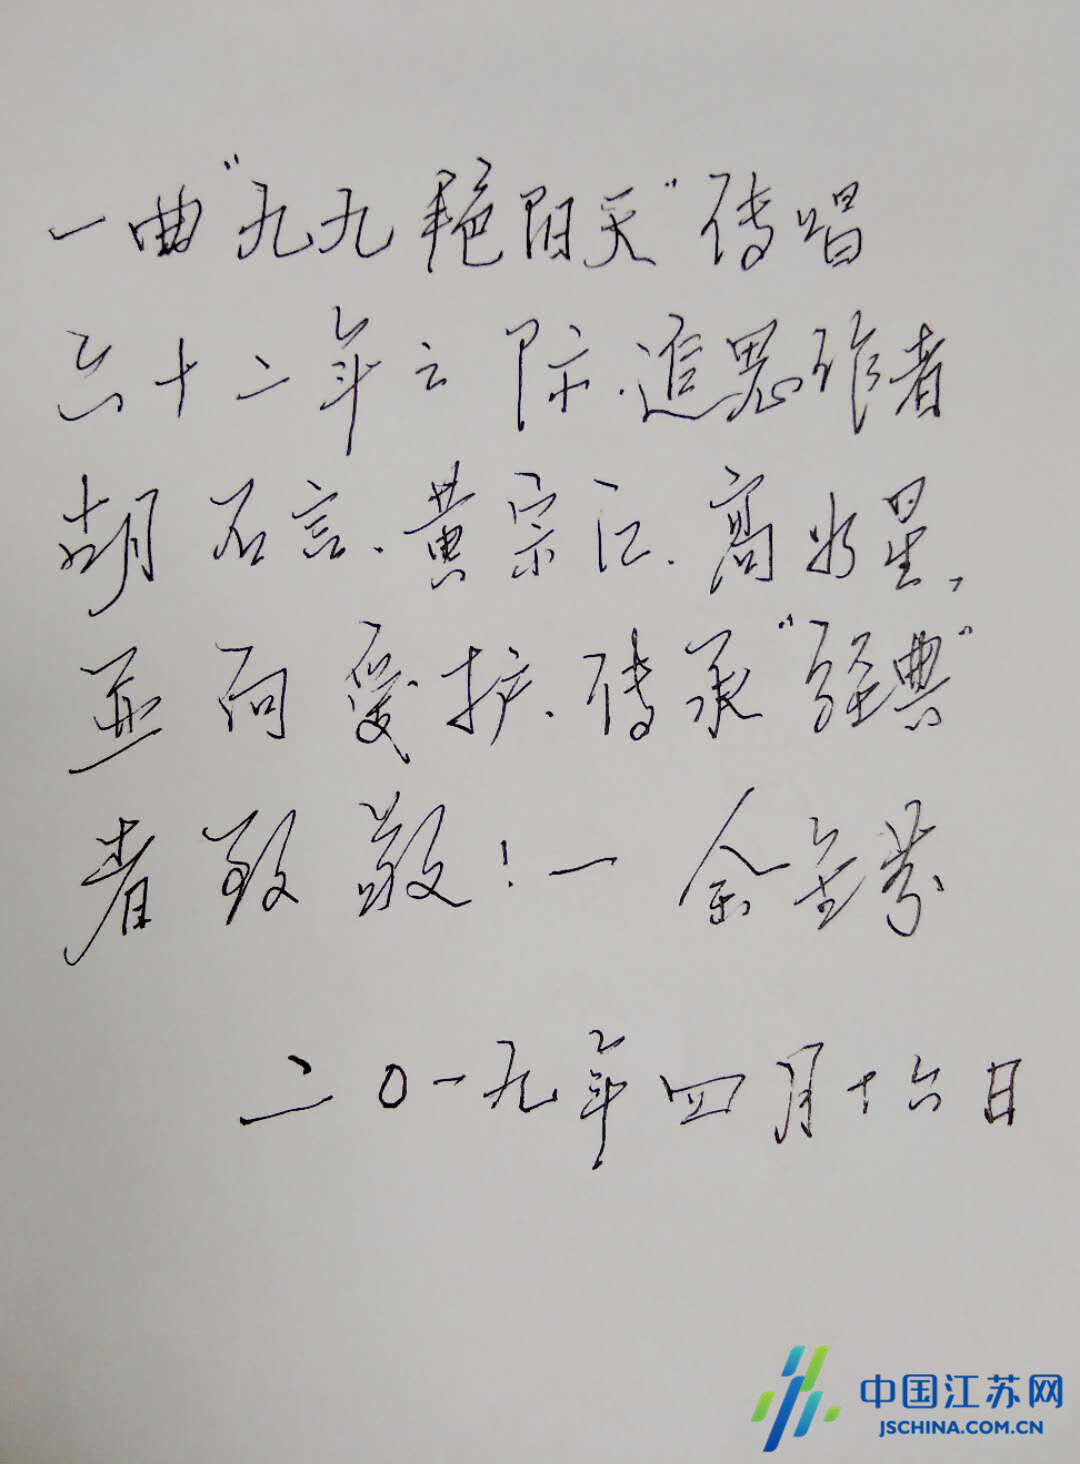 一曲"九九艳阳天"传唱
六十二年之际.追思作者
胡石言.黄宗江.高如星,
並向爱护.传承"经典"
者致敬!一 余金芬
二〇一九年四月十六日
中国江苏网
JSCHINA.COM.CN